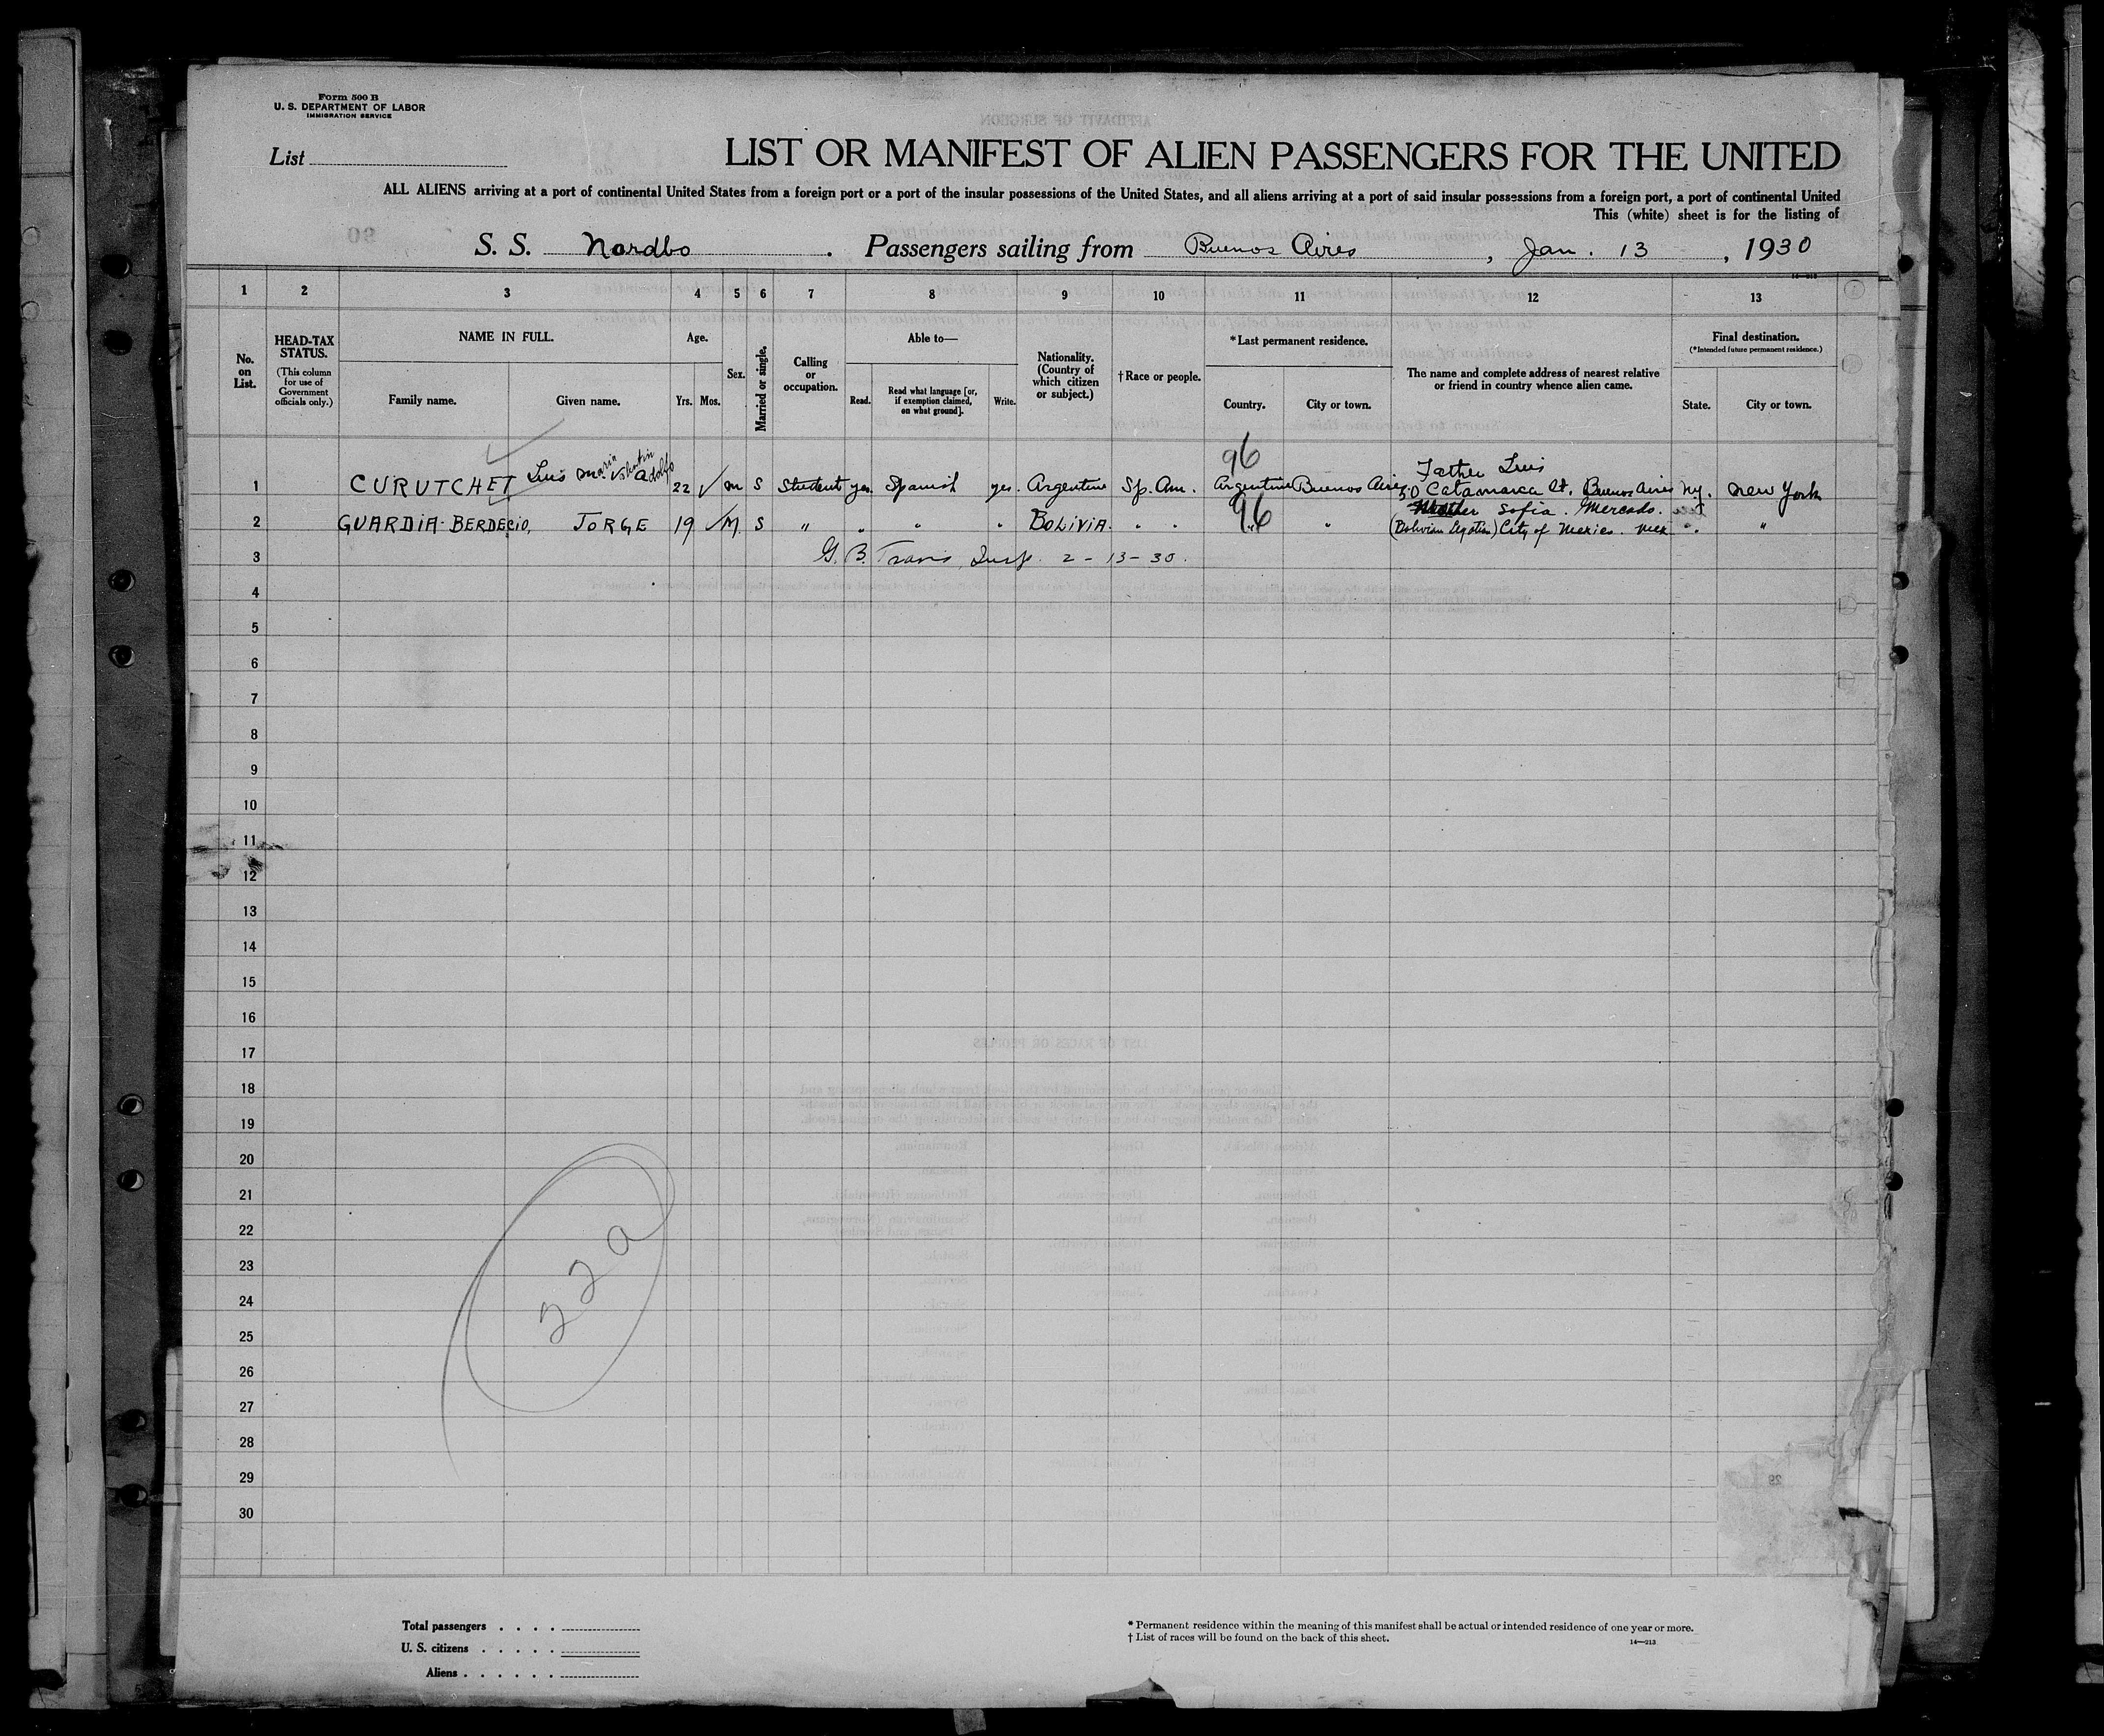 Form 500 B
U. S. DEPARTMENT OF LABOR
IMMIGRATION SERVICE
List
LIST OR MANIFEST OF ALIEN PASSENGERS FOR THE UNITED
ALL ALIENS arriving at a port of continental United States from a foreign port or a port of the insular possessions of the United States, and all aliens arriving at a port of said insular possessions from a foreign port, a port of continental United
This (white) sheet is for the listing of
S. S. Nordbo. Passengers sailing from Buenos Aires, Jan. 13, 1930
1 2 3 4 5 6 7 8 9 10 11 12 13
No. on List.
HEAD-TAX STATUS.
(This column for use of Government officials only.)
NAME IN FULL.
Family name. Given name.
Age.
Yrs. Mos.
Sex.
Married or single.
Calling or occupation.
Able to—
Read. Read what language [or, if exemption claimed, on what ground]. Write.
Nationality. (Country of which citizen or subject.)
†Race or people.
*Last permanent residence.
Country. City or town.
The name and complete address of nearest relative or friend in country whence alien came.
Final destination.
(*Intended future permanent residence.)
State. City or town.
96
Father Luis
1 CURUTCHET Luis Maria Adolfo 22 m S Student yes. Spanish yes. Argentine Sp. Am. Argentine Buenos Aires 50 Catamarca St. Buenos Aires N.y. New York
96
Mother Sofia Mercado.
2 GUARDIA-BERDECIO, JORGE 19 M. S " " " " BOLIVIA. " " " " (Bolivian Legation) City of Mexico. Mex " "
3 G. B. Travis, Insp. 2-13-30.
4
5
6
7
8
9
10
11
12
13
14
15
16
17
18
19
20
21
22
23
24
25
26
27
28
29
30
22a
Total passengers
U. S. citizens
Aliens
* Permanent residence within the meaning of this manifest shall be actual or intended residence of one year or more.
† List of races will be found on the back of this sheet.
14—213